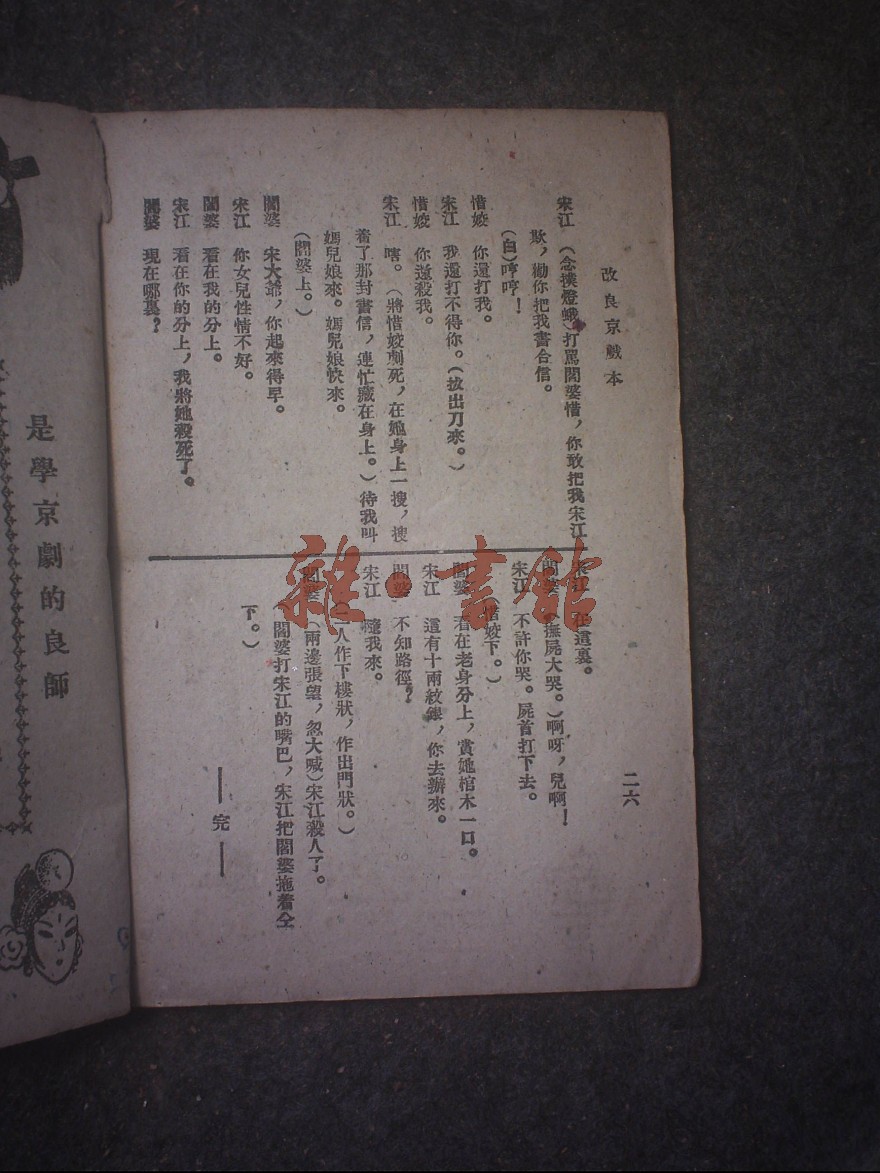 改良京戲本
二六
宋江 (念撲燈蛾)打罵閻婆惜，你敢把我宋江
欺，勸你把我書合信。
(白)哼哼！
惜姣 你還打我。
宋江 我還打不得你。(拔出刀來。)
惜姣 你還殺我。
宋江 嗐。(將惜姣刺死，在她身上一搜，搜
着了那封書信，連忙藏在身上。)待我叫
媽兒娘來。媽兒娘快來。
(閻婆上。)
閻婆 宋大爺，你起來得早。
宋江 你女兒性情不好。
閻婆 看在我的分上。
宋江 看在你的分上，我將她殺死了。
閻婆 現在哪裏？
宋江 在這裏。
閻婆 (撫屍大哭。)啊呀，兒啊！
宋江 不許你哭。屍首打下去。
惜姣下。)
閻婆 看在老身分上，賞她棺木一口。
宋江 這有十兩紋銀，你去辦來。
閻婆 不知路徑？
宋江 隨我來。
(二人作下樓狀，作出門狀。)
閻婆 (兩邊張望，忽大喊)宋江殺人了。
(閻婆打宋江的嘴巴，宋江把閻婆拖着仝
下。)
—— 完 ——
是學京劇的良師
雜·書館